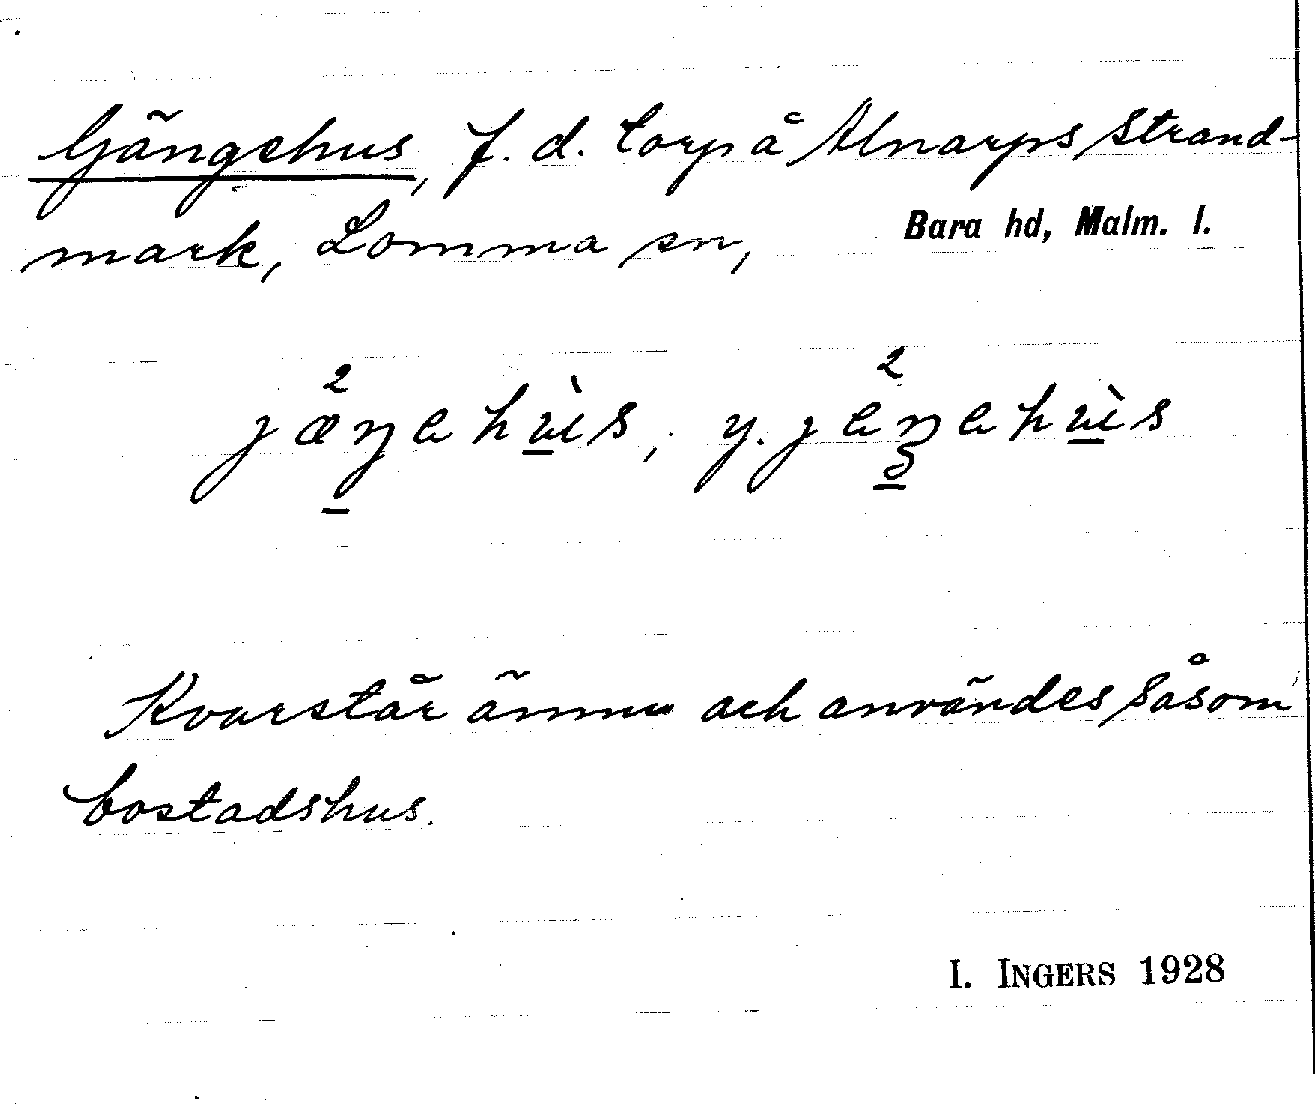 Gängehus, f. d. torp å Alnarps strand-
mark, Lomma sn, Bara hd, Malm. l.
jæ²ŋehùs, y. je²ŋehùs
Kvarstår ännu och användes såsom
bostadshus.
I. INGERS 1928